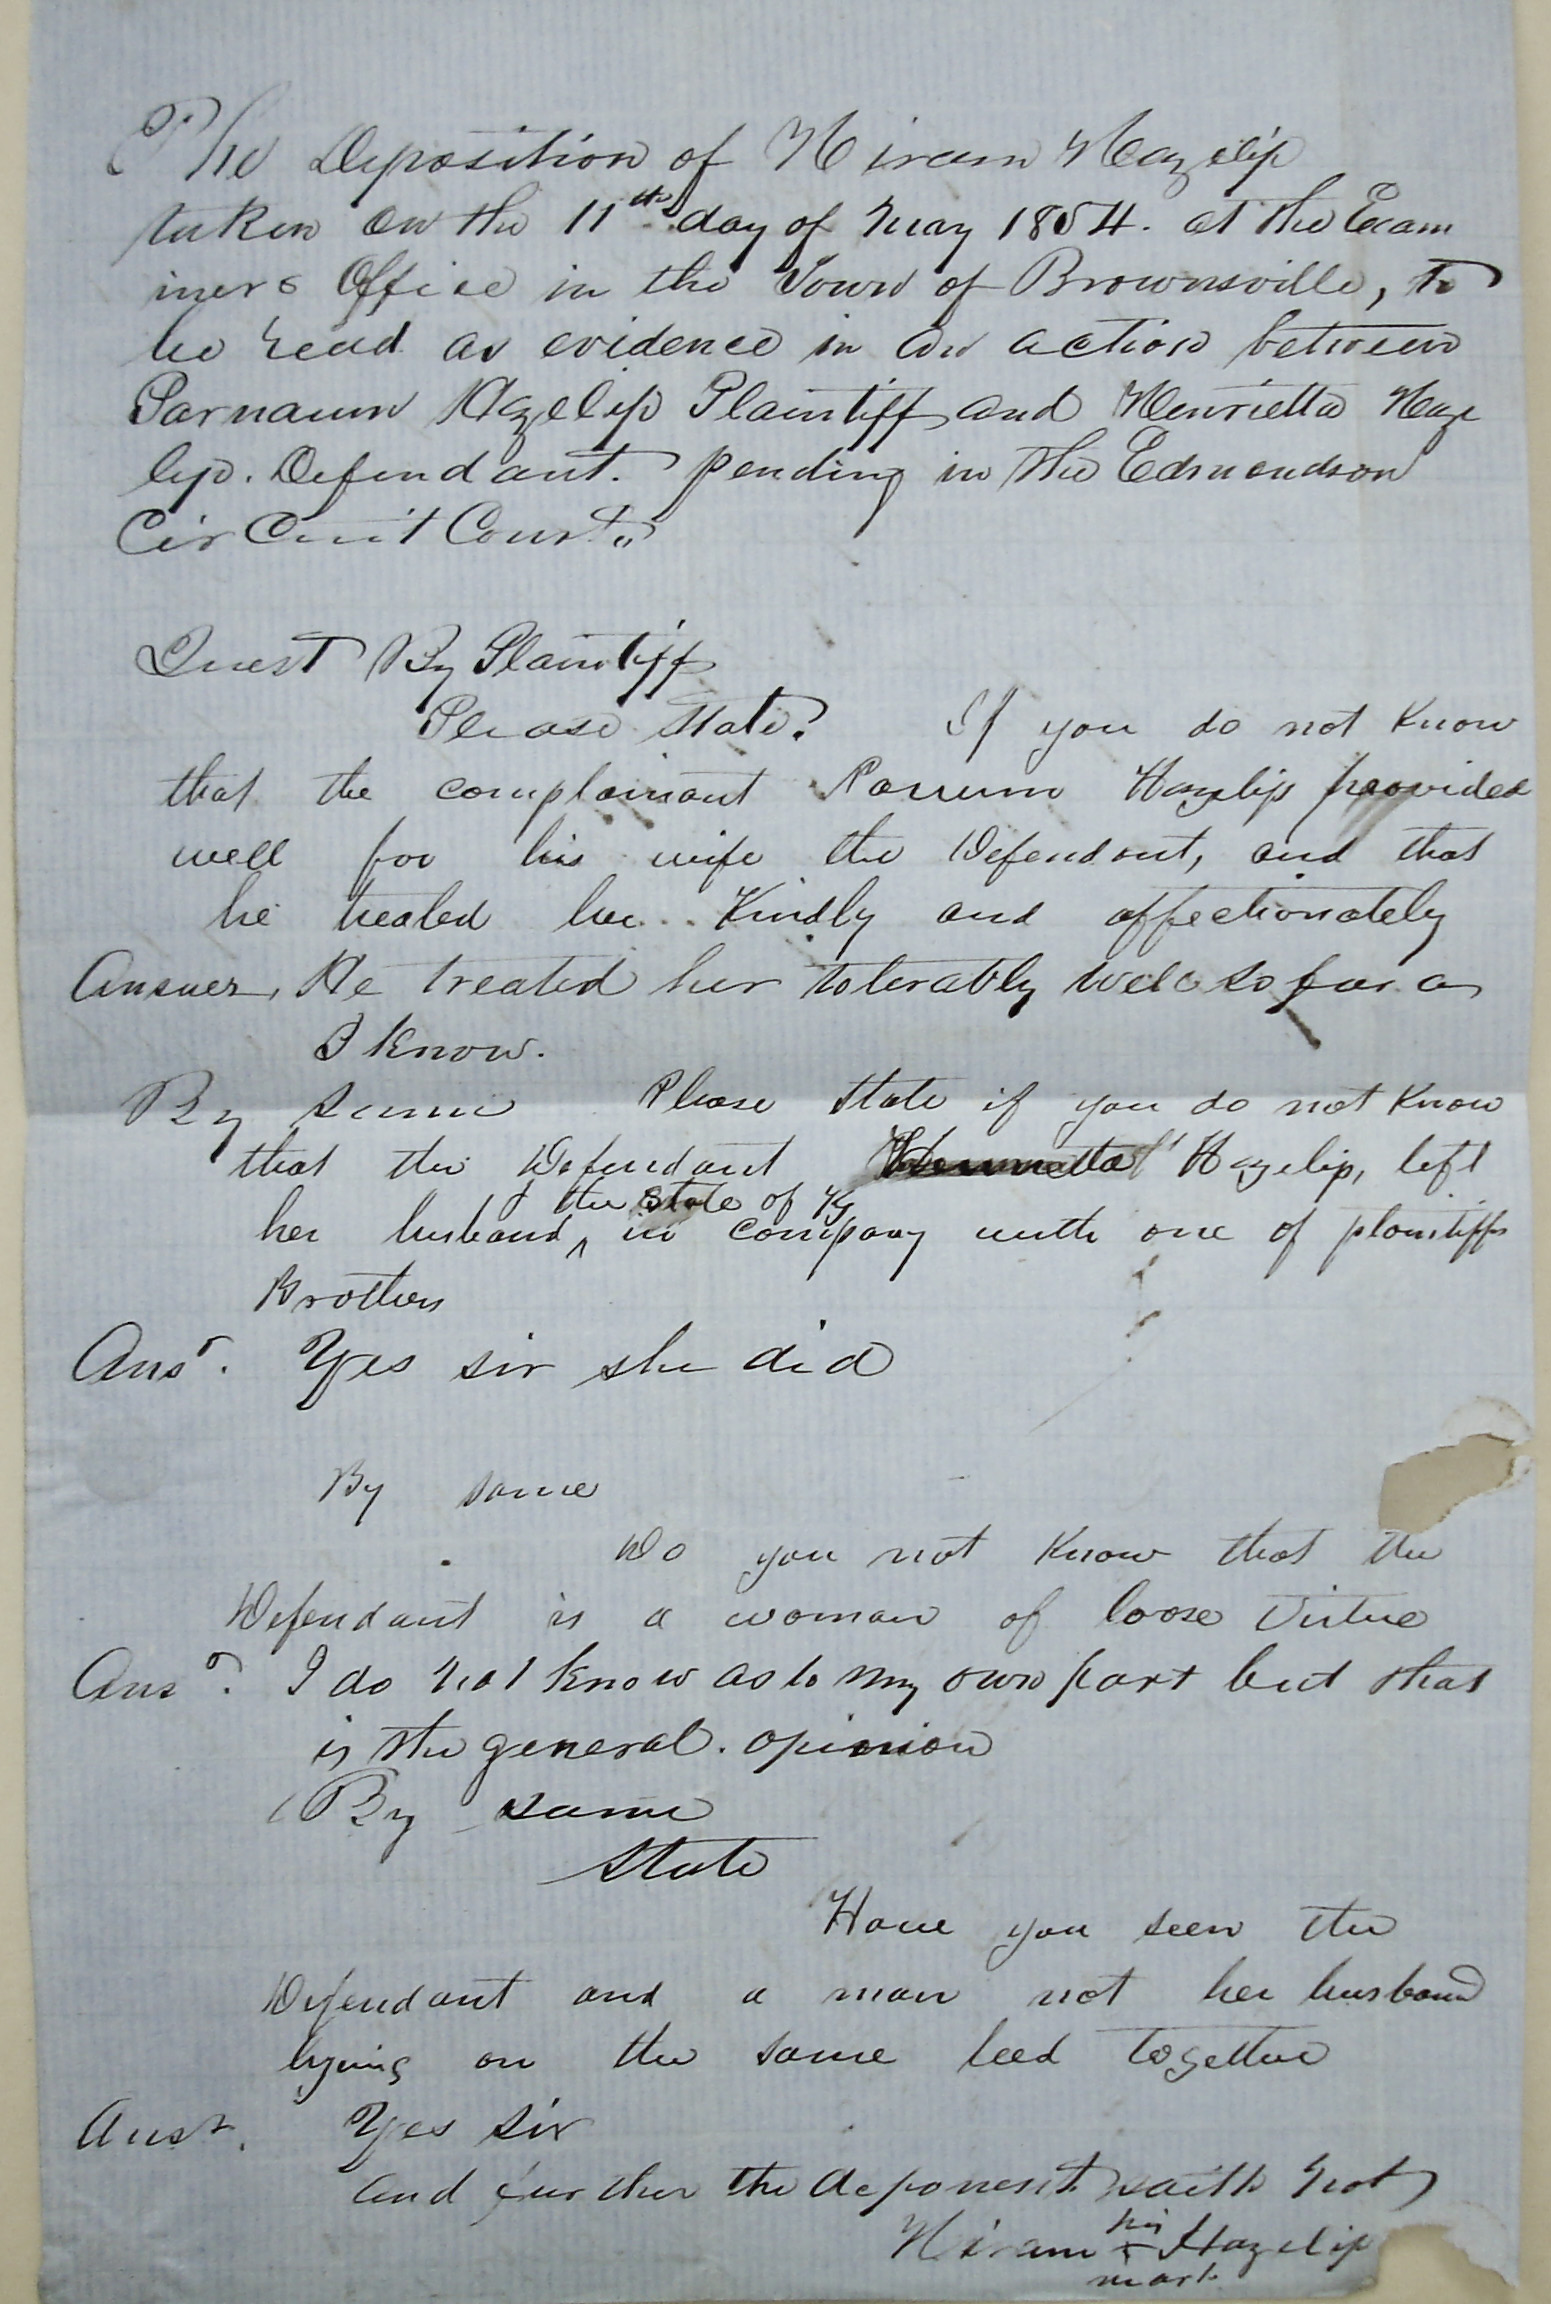 The Deposition of Hiram Hazelip
taken on the 11th day of May 1854. at the Exam
iners Office in the Town of Brownsville, to
be read as evidence in an action between
Parnaum Hazelip Plaintiff and Henrietta Haze
lip. Defendant. pending in the Edmondson
Circuit Court"
Quest By Plaintiff
Please State? If you do not know
that the complainant Parnum Hazelip provided
well for his wife the Defendant, and that
he treated her Kindly and affectionately
Answer, He treated her tolerably well so far as
I know.
By same Please State if you do not know
that the Defendant Henrietta Hazelip, left
& the State of Ky
her husband ^ in company with one of plaintiffs
Brothers
Ansr. Yes sir she did
By same
Do you not know that the
Defendant is a woman of loose virtue
Ansr. I do not know as to my own part but that
is the general. opinion
By same
State
Have you seen the
Defendant and a man not her husband
lying on the same bed together
Ansr. Yes sir
and further the deponent saith not
his
Hiram x Hazelip
mark